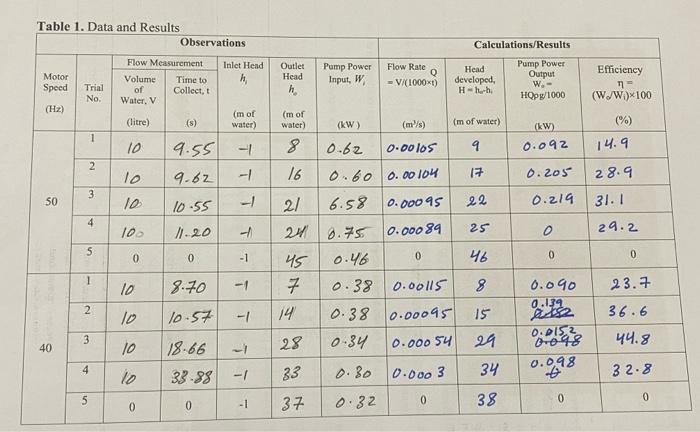 Table 1. Data and Results
Observations Calculations/Results
Motor Speed (Hz) Trial No. Flow Measurement Inlet Head hᵢ (m of water) Outlet Head hₒ (m of water) Pump Power Input, Wᵢ (kW) Flow Rate Q = V/(1000×t) (m³/s) Head developed, H = hₒ-hᵢ (m of water) Pump Power Output Wₒ = HQρg/1000 (kW) Efficiency η = (Wₒ/Wᵢ)×100 (%)
Volume of Water, V (litre) Time to Collect, t (s)
50
1 10 9.55 -1 8 0.62 0.00105 9 0.092 14.9
2 10 9.62 -1 16 0.60 0.00104 17 0.205 28.9
3 10 10.55 -1 21 6.58 0.00095 22 0.219 31.1
4 10 11.20 -1 24 0.75 0.00089 25 0 29.2
5 0 0 -1 45 0.46 0 46 0 0
40
1 10 8.70 -1 7 0.38 0.00115 8 0.090 23.7
2 10 10.57 -1 14 0.38 0.00095 15 0.139 36.6
3 10 18.66 -1 28 0.34 0.00054 29 0.0152 0.098 44.8
4 10 33.88 -1 33 0.30 0.0003 34 0.098 32.8
5 0 0 -1 37 0.32 0 38 0 0